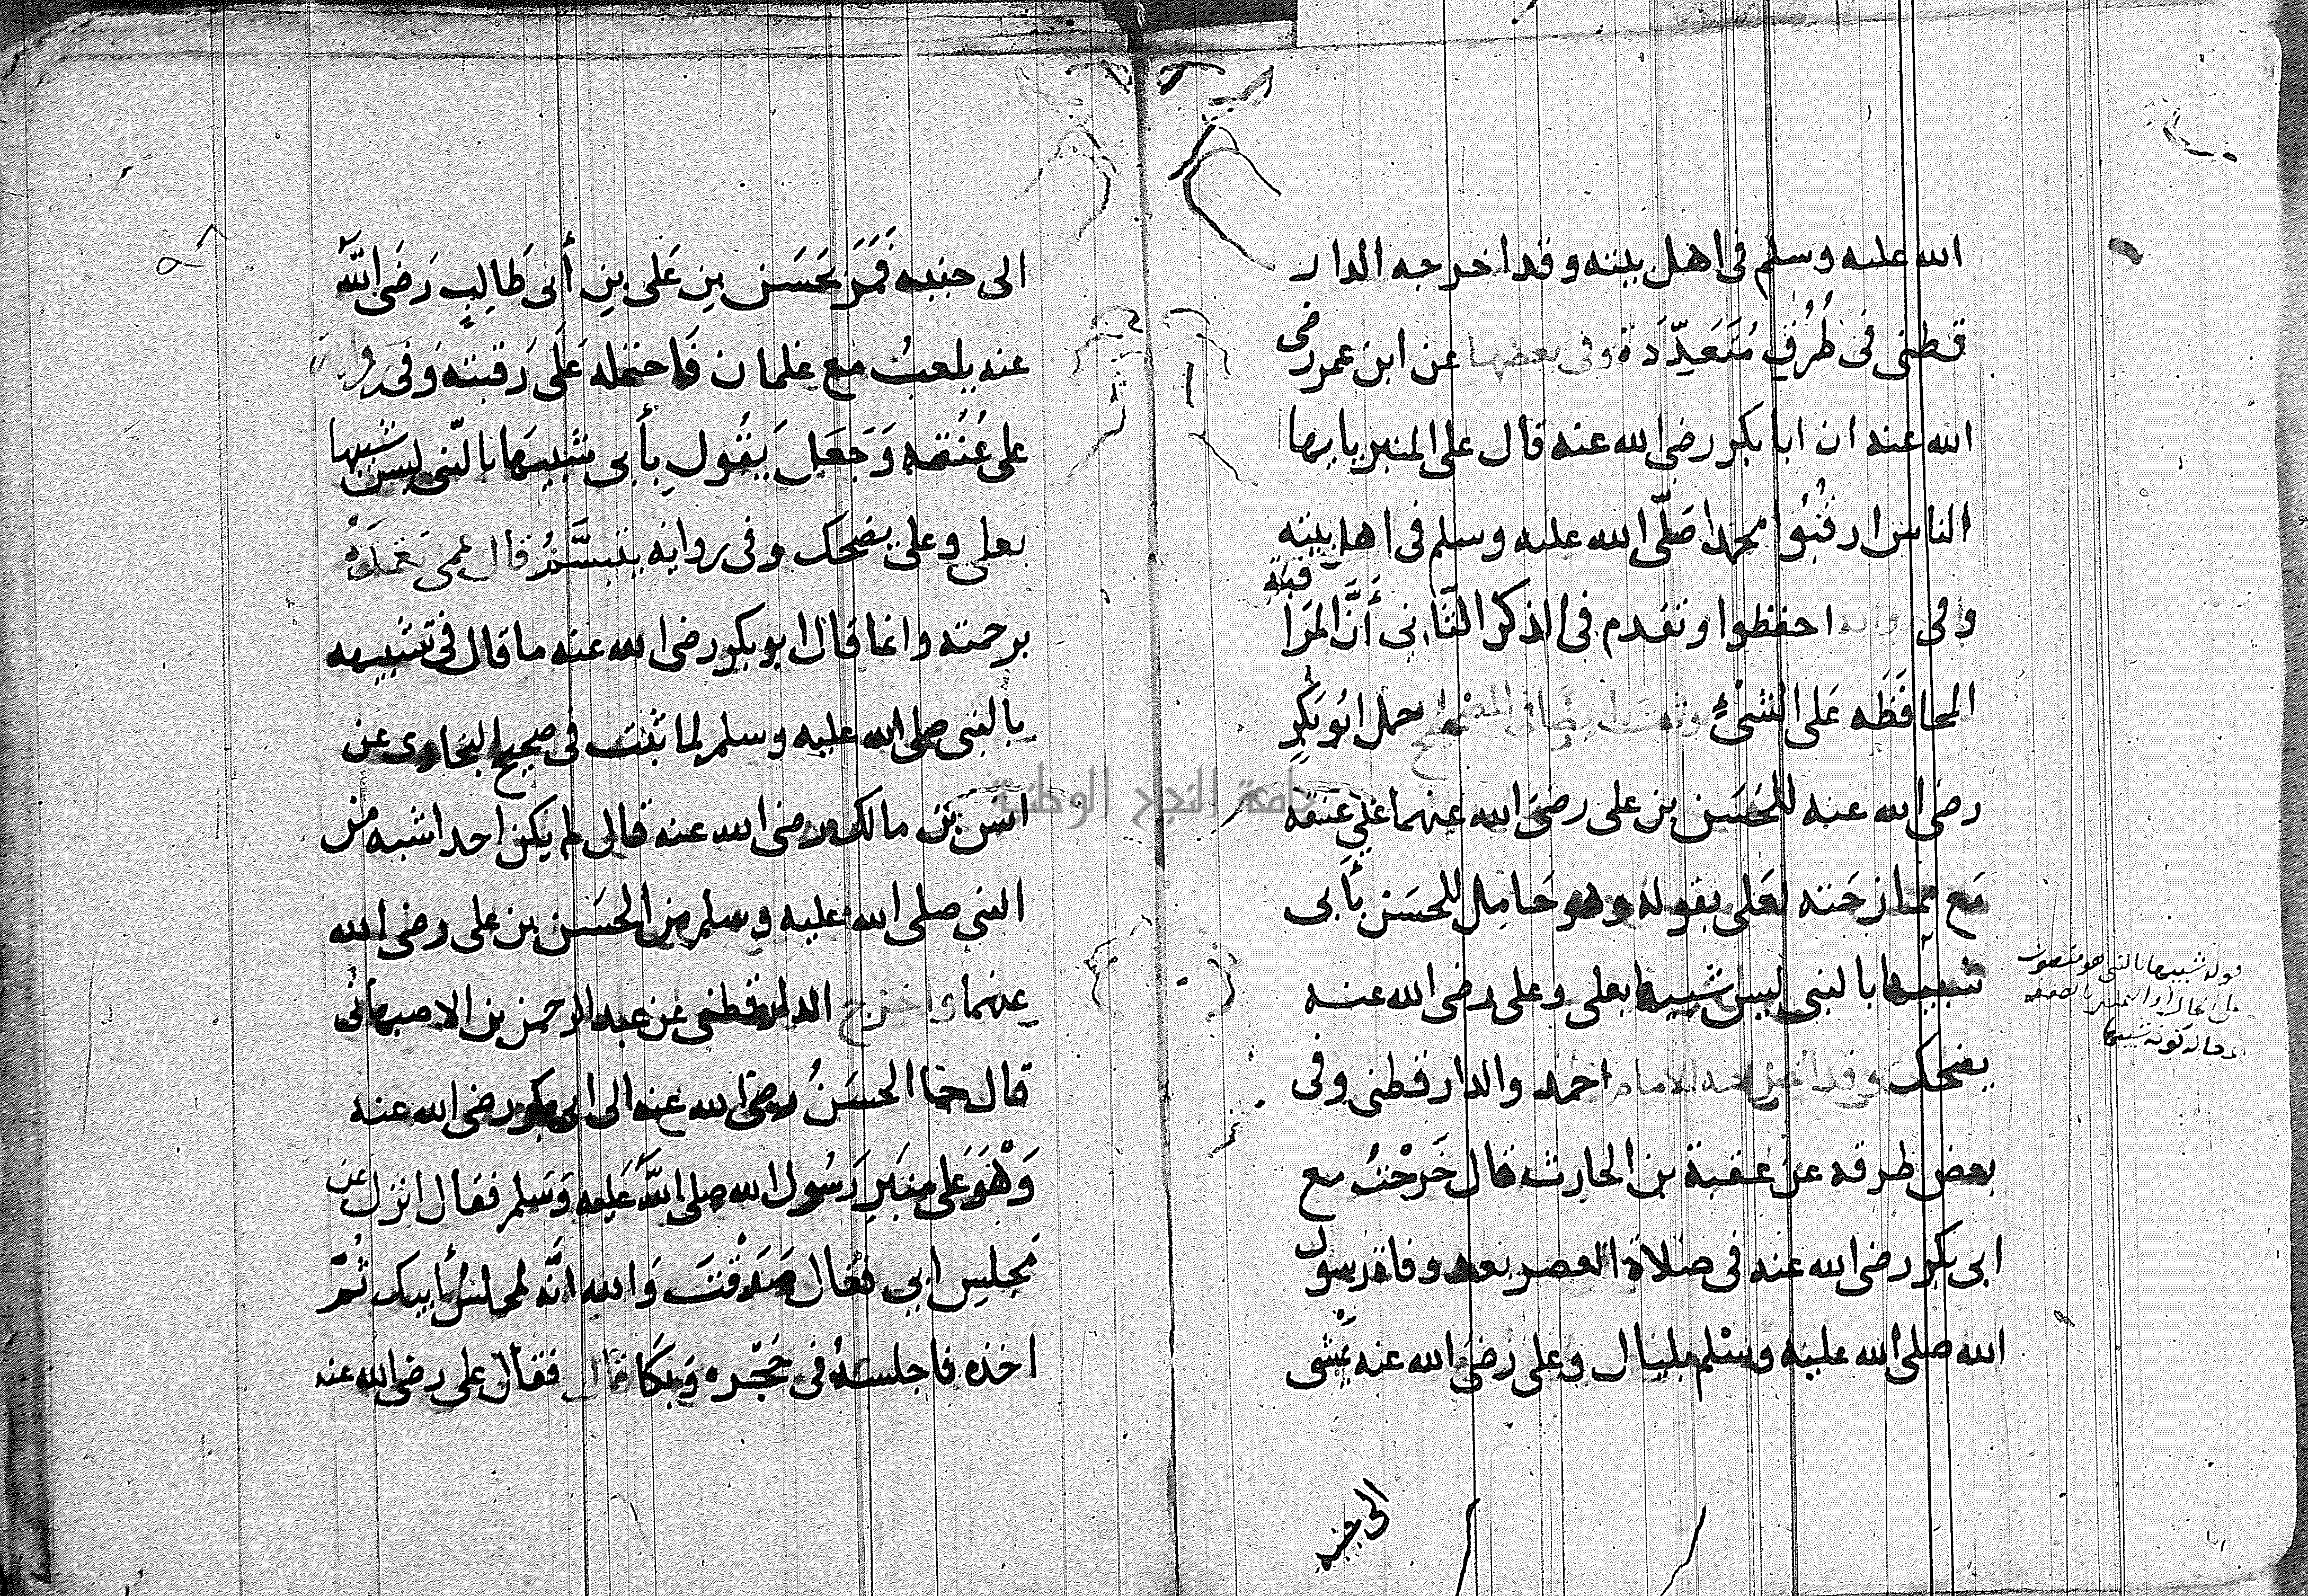 الله عليه وسلم فى اهل بيته وقد اخرجه الدار
قطنى فى طُرُقٍ مُتَعَدِّدَة وفى بعضها عن ابن عمر رضى
الله عنه ان ابا بكر رضى الله عنه قال على المنبر يا ايها
الناس ارقُبُوا محمدا صَلّى الله عليه وسلم فى اهل بيته
وفى رواية احفظوا وتقدم فى الذكر الثانى أَنَّ المَرَاقبَة
المحافَظَه عَلى الشئ حمل ابُو بَكرٍ
رضى الله عنه للحَسَن بن على رضى الله عنهما على عنقه
مَع ممازحَته لعَلى بقوله وهو حَامِل للحسَن بأبى
شبيها بالنبى ليس شبيها بعلى وعلى رضى الله عنه
يضحك وقد اخرجه الامام احمد والدارقطنى وفى
بعض طرقه عن عقبة بن الحارث قال خَرَجْتُ مع
ابى بكر رضى الله عنه فى صلاة العصر بعد وفاة رسول
الله صلى الله عليه وسلم بليال وعلى رضى الله عنه يمشى
الى جنبه
قوله شبيها بالنبى هو منصوب
على الحال
اى حال كونه شبيها
الى جنبه فَمَرَّ بحَسَن بن عَلى بن أبى طَالِبٍ رَضىَ اللّه
عنه يلعبُ مَع غلمان فَاحتمله عَلَى رَقبته وَفى رواية
على عُنُقه وَجَعَلَ يَقُول بأبى شبيهَا بالنّبى ليس شبيها
بعلى وعلى يضحك وفى رواية يتبسَّمُ قال عمى تغمدَهُ
برحمته وانما قال ابو بكر رضى الله عنه ما قال فى تشبيهه
بالنبى صلى الله عليه وسلم لما ثبت فى صحيح البخارى عن
انس بن مالك رضى الله عنه قال لم يكن احد اشبه من
النبى صلى الله عليه وسلم من الحَسَن بن على رضى الله
عنهما واخرج الدارقطنى عن عبد الرحمن بن الاصبهانى
قال جا الحسَنُ رضى الله عنه الى ابى بكر رضى الله عنه
وَهْوَ عَلى منبَرِ رَسُول الله صلى اللَّه عَليه وَسَلم فقال انزل عَن
مجلس ابى فقال صَدَقْتَ وَالله انَّه لمجلسُ أبيك ثُمَّ
اخذه فاجلسَهُ فى حَجْره وَبكَا قال فقال على رضى الله عنه
جامعة النجاح الوطنية